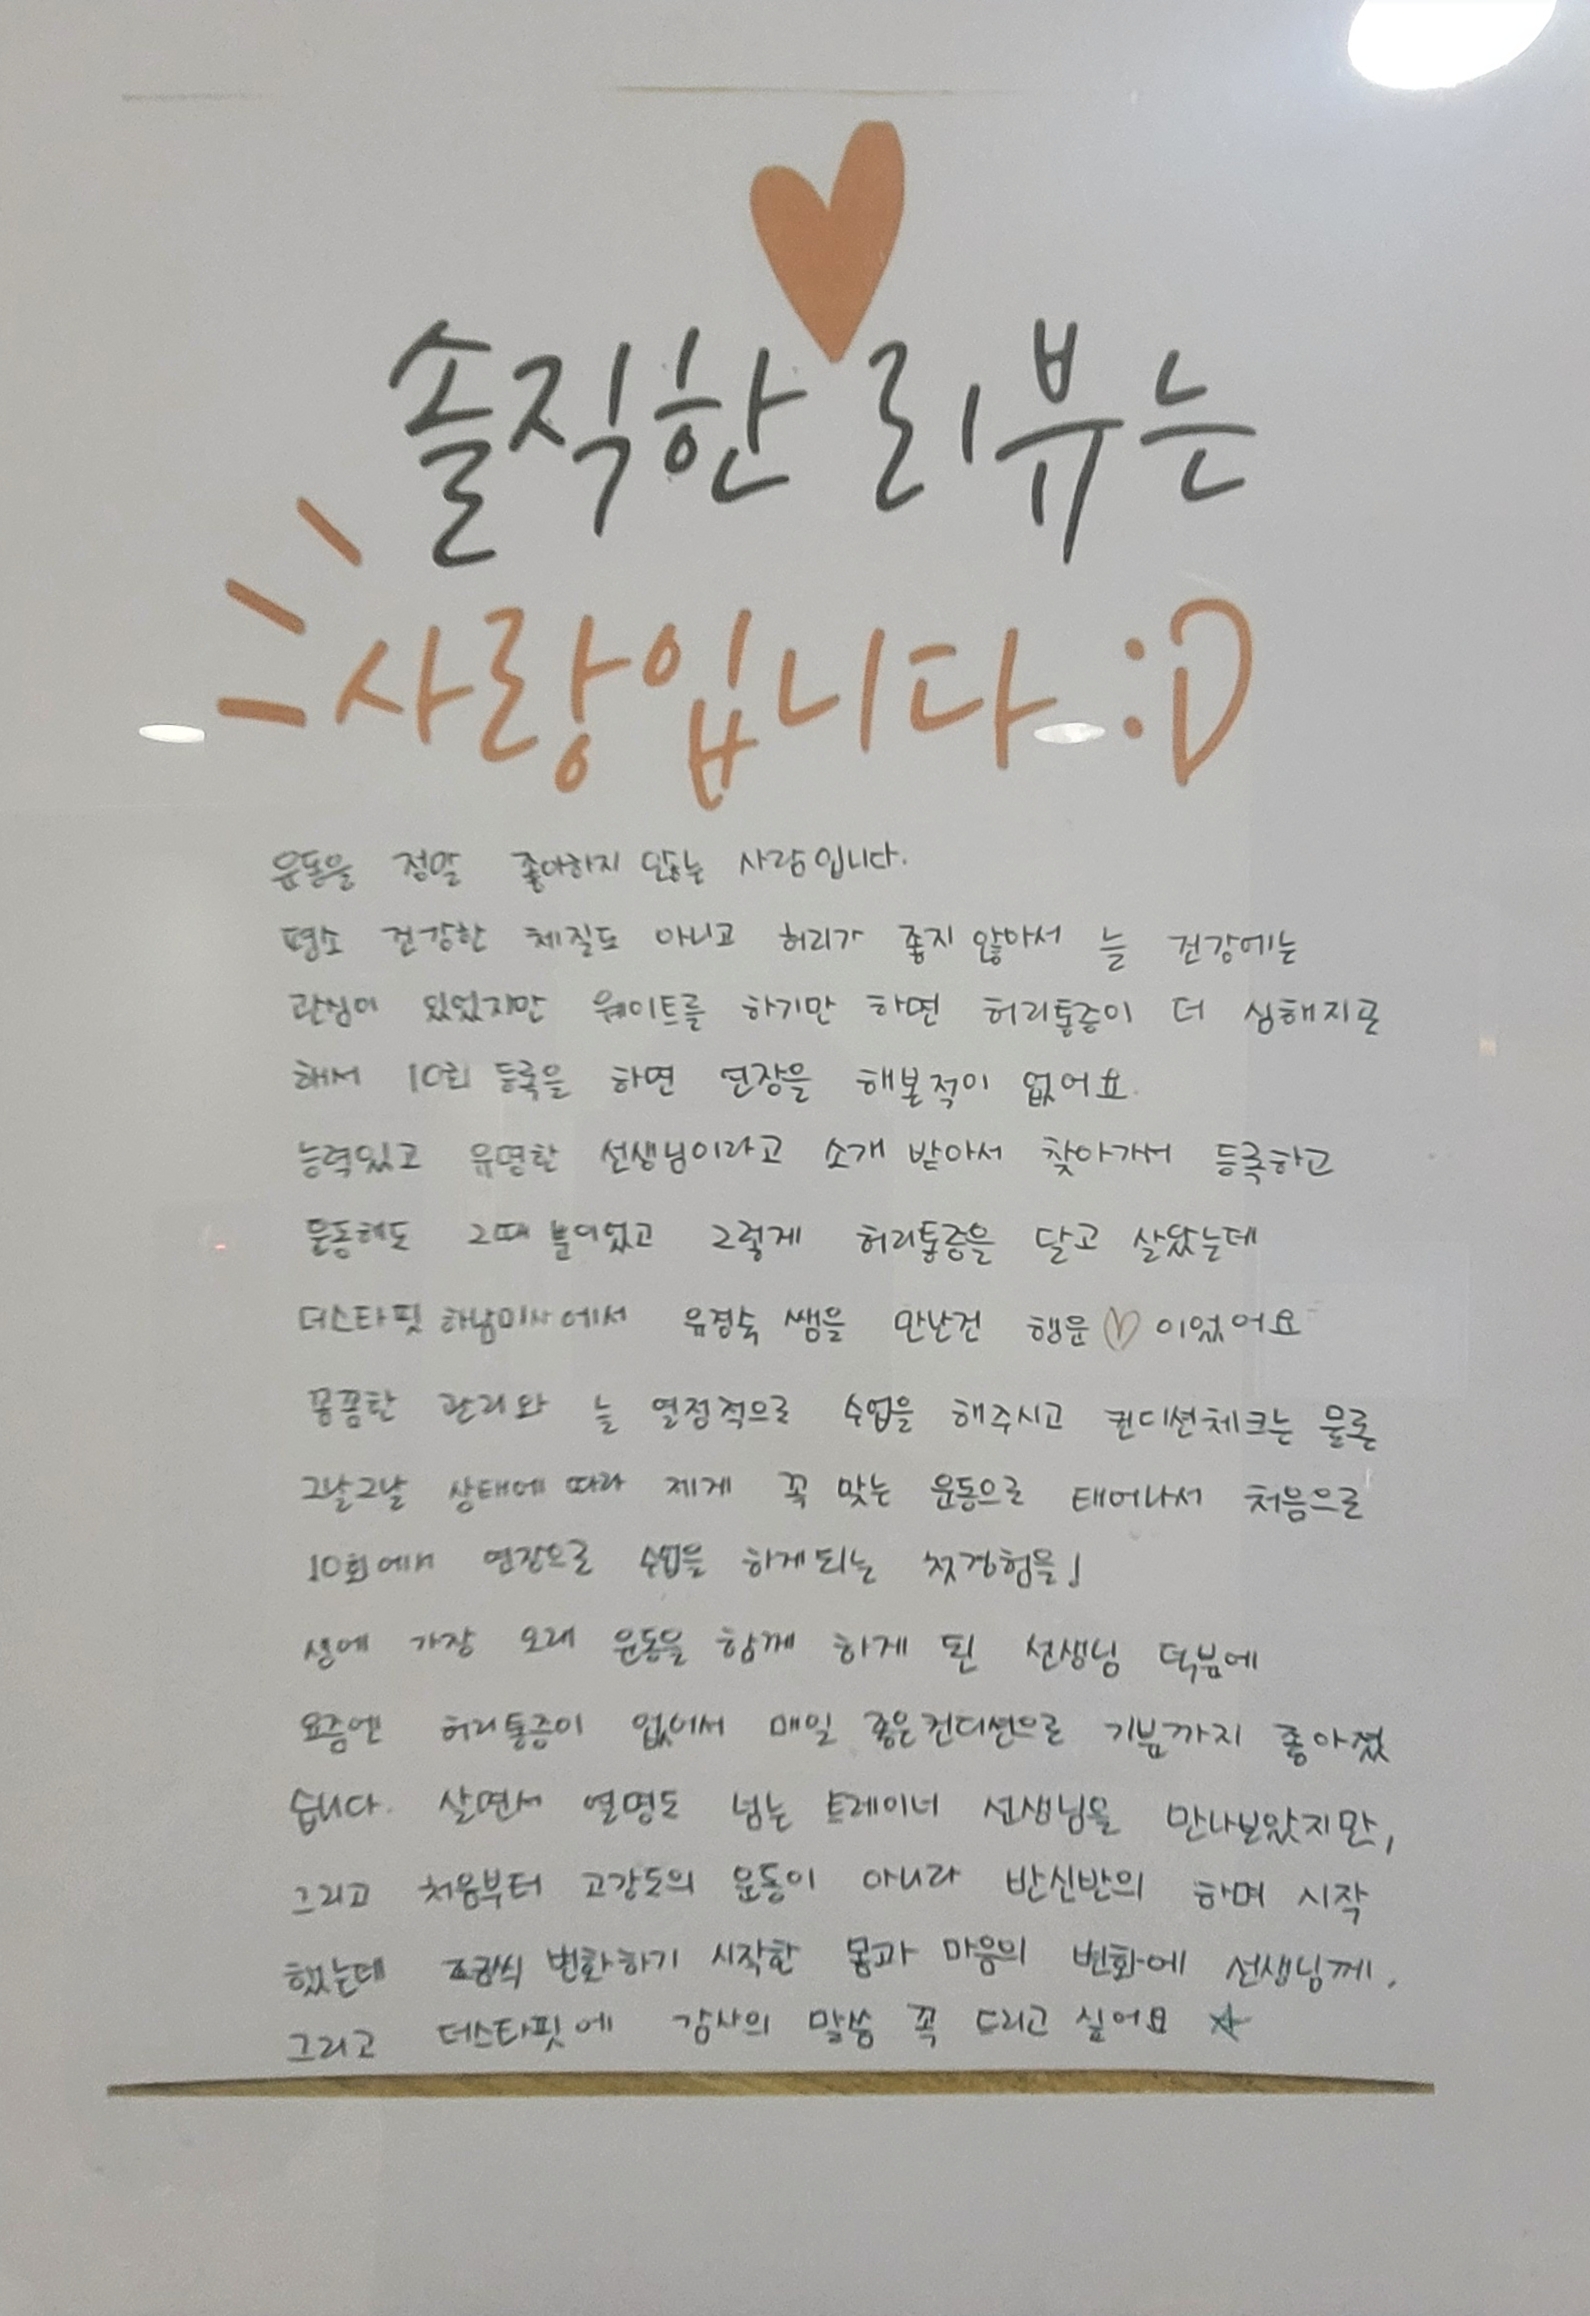 솔직한 리뷰는
사랑입니다 :D
운동을 정말 좋아하지 않는 사람입니다.
평소 건강한 체질도 아니고 허리가 좋지 않아서 늘 건강에는
관심이 있었지만 웨이트를 하기만 하면 허리통증이 더 심해지곤
해서 10회 등록을 하면 연장을 해본적이 없어요.
능력있고 유명한 선생님이라고 소개 받아서 찾아가서 등록하고
운동해도 그때 뿐이었고 그렇게 허리통증을 달고 살았는데
더스타핏 하남미사에서 유경숙 쌤을 만난건 행운♡이었어요
꼼꼼한 관리와 늘 열정적으로 수업을 해주시고 컨디션체크는 물론
그날그날 상태에 따라 제게 꼭 맞는 운동으로 태어나서 처음으로
10회에서 연장으로 수업을 하게되는 첫경험을!
생에 가장 오래 운동을 함께 하게 된 선생님 덕붐에
요즘엔 허리통증이 없어서 매일 좋은컨디션으로 기분까지 좋아졌
습니다. 살면서 열명도 넘는 트레이너 선생님을 만나보았지만,
그리고 처음부터 고강도의 운동이 아니라 반신반의 하며 시작
했는데 조금씩 변화하기 시작한 몸과 마음의 변화에 선생님께,
그리고 더스타핏에 감사의 말씀 꼭 드리고 싶어요 ☆